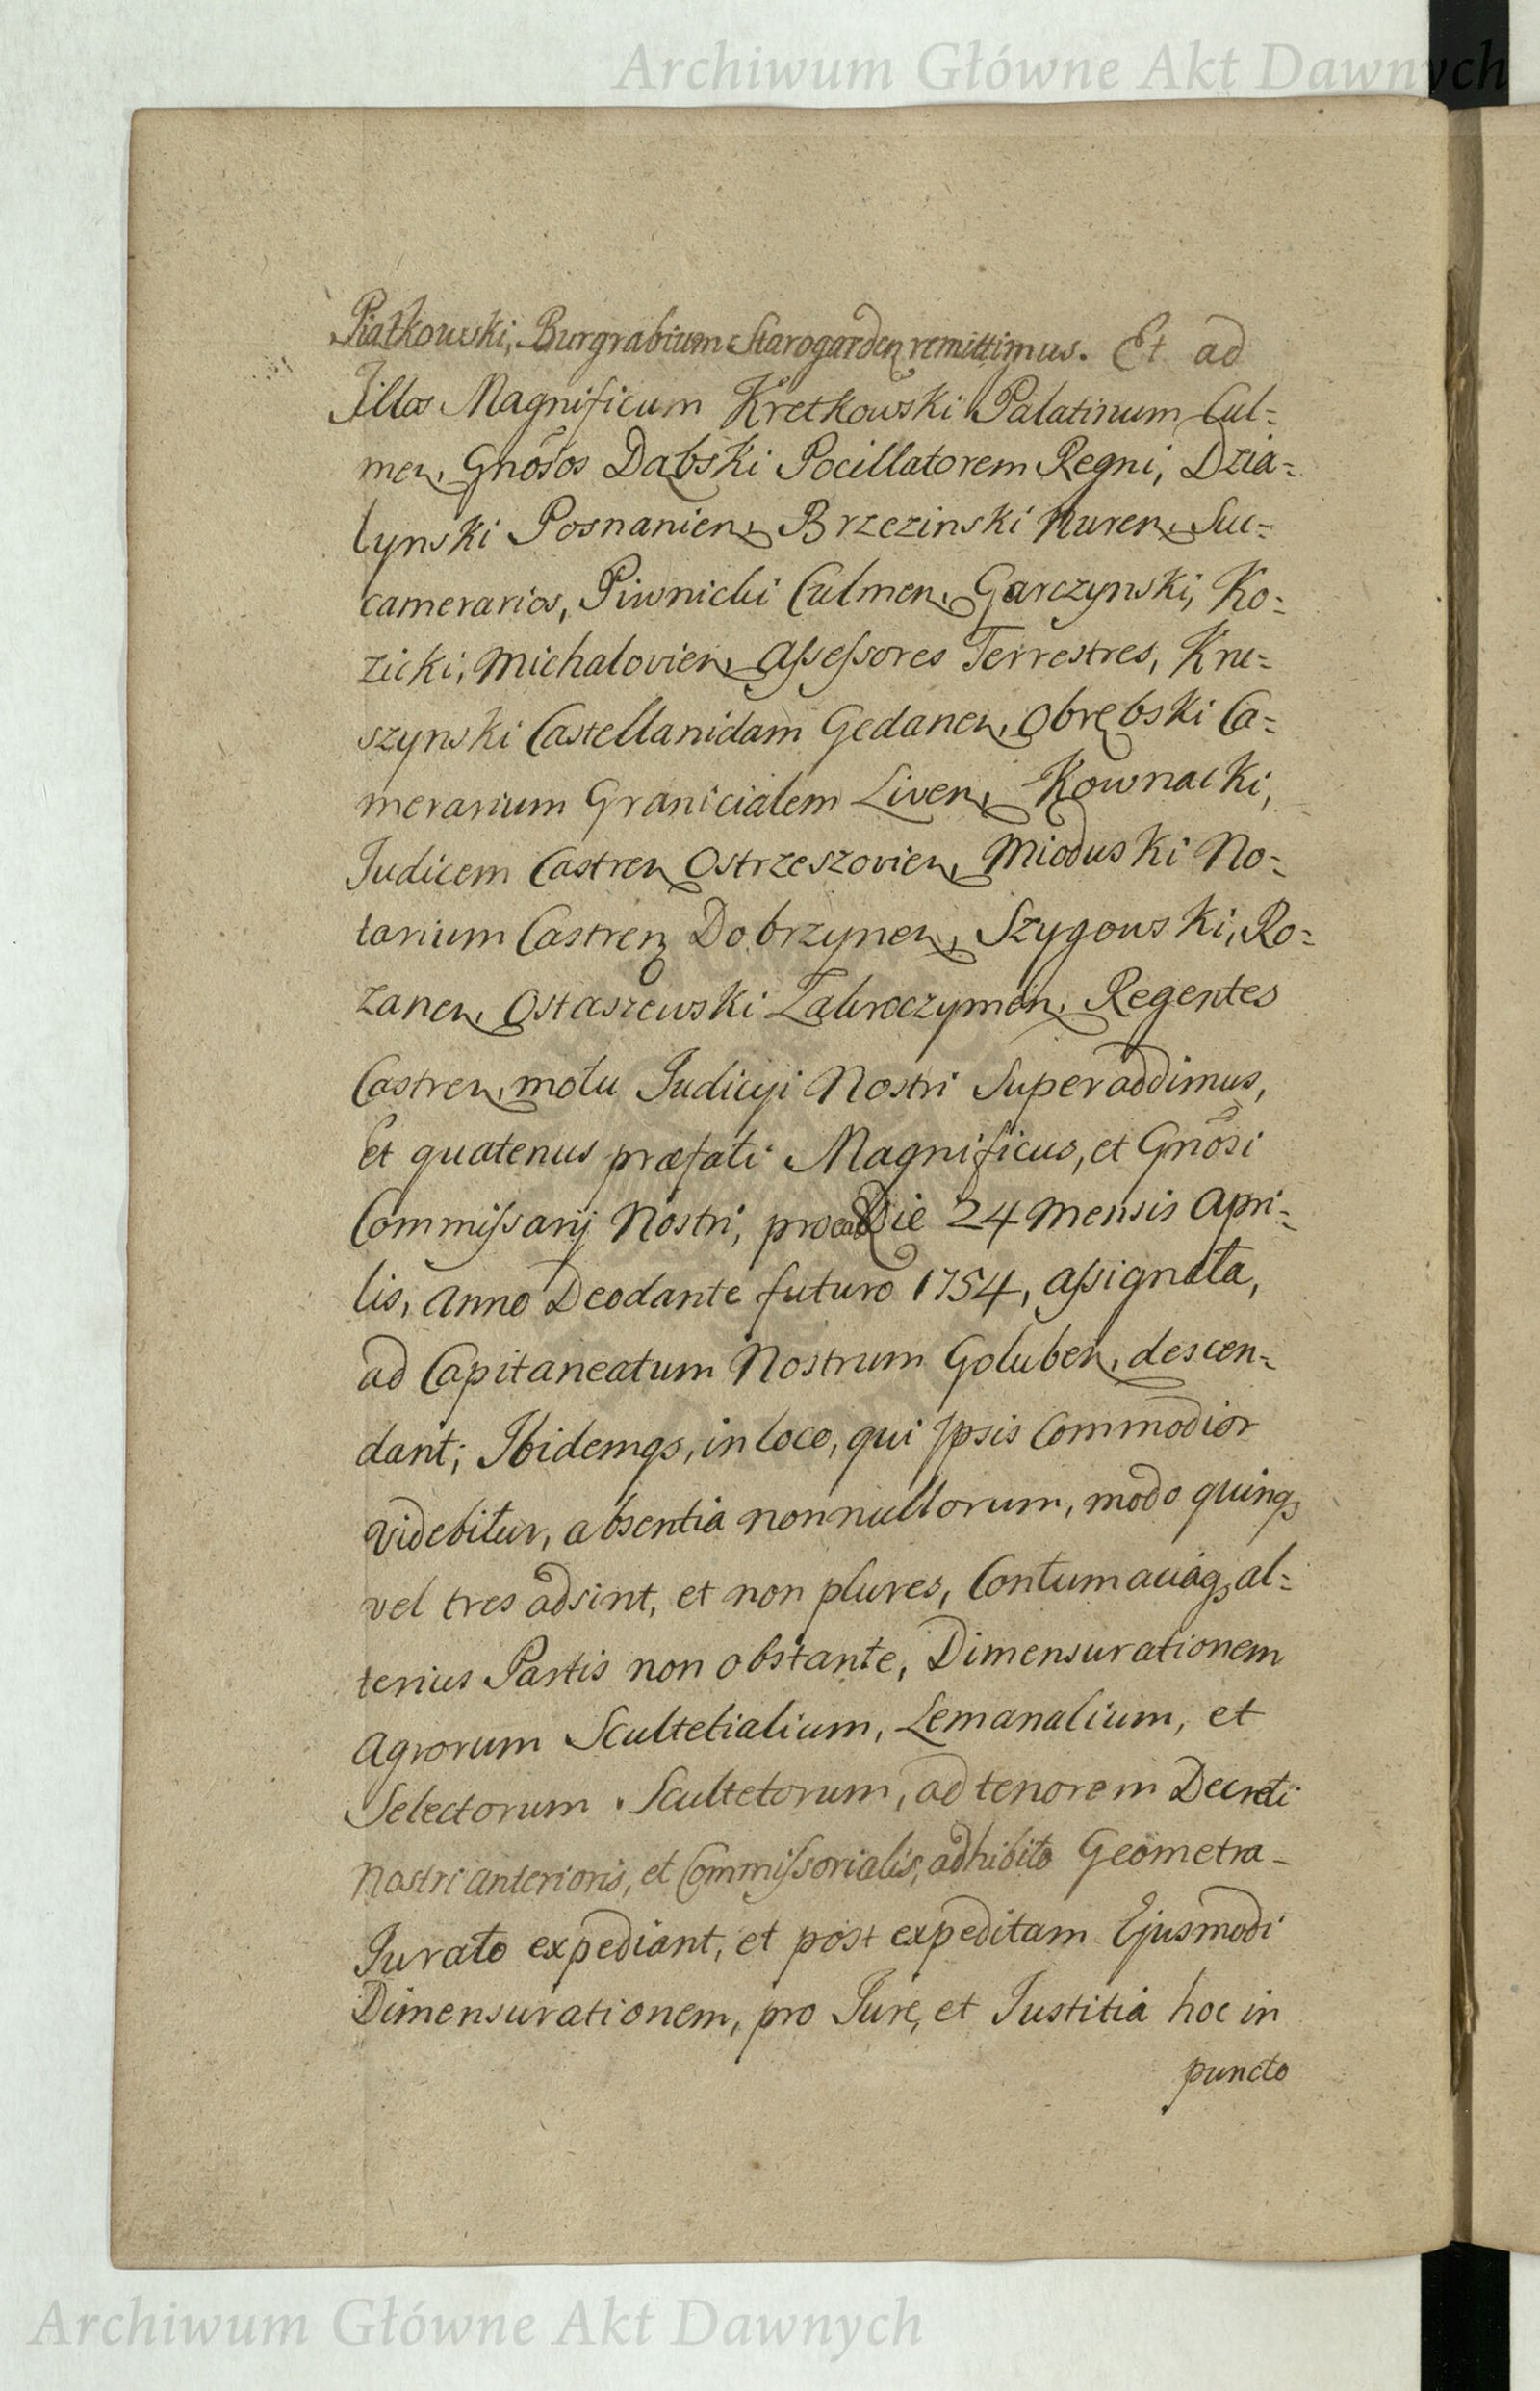 Archiwum Główne Akt Dawnych
Piatkowski, Burgrabium Starogarden remittimus. Et ad
Illos Magnificum Kretkowski Palatinum Cul=
men, Gnõsos Dąbski Pocillatorem Regni, Dzia=
lynski Posnanien, Brzezinski Nuren, Suc=
camerarios, Piwnicki Culmen, Garczynski, Ko=
zicki, Michalovien, Assessores Terrestres, Kru=
szynski Castellanidam Gedanen, Obrębski Ca=
merarium Granicialem Liven, Kownacki,
Judicem Castren Ostrzeszovien, Mioduski No=
tarium Castren Dobrzynen, Szygowski, Ro=
zanen, Ostaszewski Zakroczymen, Regentes
Castren, motu Judicij Nostri Superaddimus,
Et quatenus præfati Magnificus, et Gnõsi
Commissarij Nostri, pro ea Die 24 Mensis Apri=
lis, Anno Deodante futuro 1754, assignata,
ad Capitaneatum Nostrum Goluben, descen=
dant; Ibidemqs, in loco, qui Ipsis Commodior
videbitur, absentia nonnullorum, modo quinqs
vel tres adsint, et non plures, Contumaciaqs al=
terius Partis non obstante, Dimensurationem
Agrorum Scultetialium, Lemanalium, et
Selectorum Scultetorum, ad tenorem Decreti
Nostri anterioris, et Commissorialis, adhibito Geometra
Jurato expediant, et post expeditam Ejusmodi
Dimensurationem, pro Jure, et Justitia hoc in
puncto
Archiwum Główne Akt Dawnych